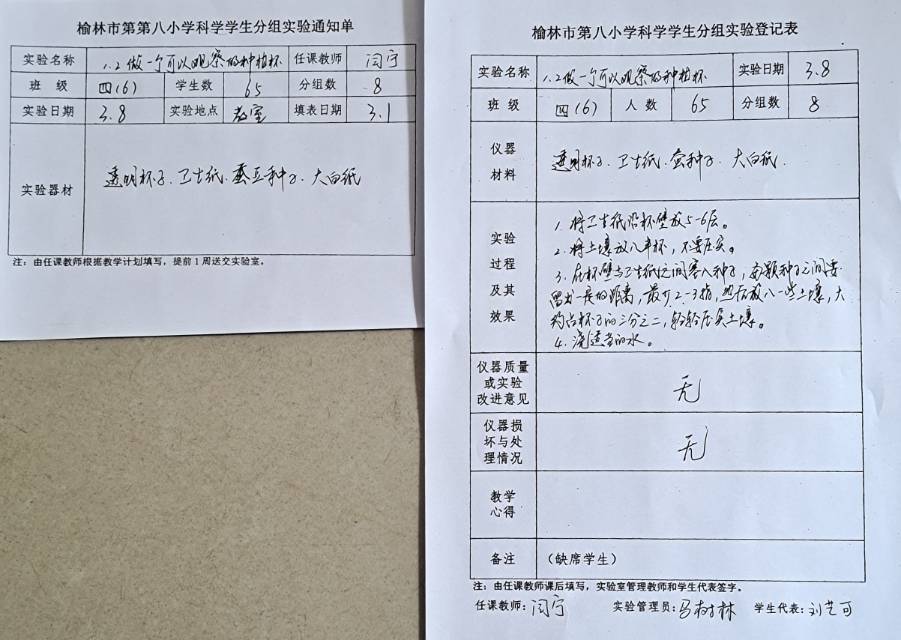 榆林市第第八小学科学学生分组实验通知单
实验名称 1.2做一个可以观察的种植杯 任课教师 闫宁
班 级 四(6) 学生数 65 分组数 8
实验日期 3.8 实验地点 教室 填表日期 3.1
实验器材 透明杯子、卫生纸、蚕豆种子、大白纸
注:由任课教师根据教学计划填写,提前1周送交实验室。
榆林市第第八小学科学学生分组实验登记表
实验名称 1.2做一个可以观察的种植杯 实验日期 3.8
班 级 四(6) 人 数 65 分组数 8
仪器
材料
透明杯子、卫生纸、蚕种子、大白纸.
实验
过程
及其
效果
1. 将卫生纸沿杯壁放5-6层。
2. 将土壤放入半杯,不要压实。
3. 在杯壁与卫生纸之间塞入种子,每颗种子之间要
留出一定的距离,最好2-3指,然后放入一些土壤,大
约占杯子的三分之二,轻轻压实土壤。
4. 浇适当的水。
仪器质量
或实验
改进意见
无
仪器损
坏与处
理情况
无
教学
心得
备注 (缺席学生)
注:由任课教师课后填写,实验室管理教师和学生代表签字。
任课教师:闫宁 实验管理员:马树林 学生代表:刘艺可